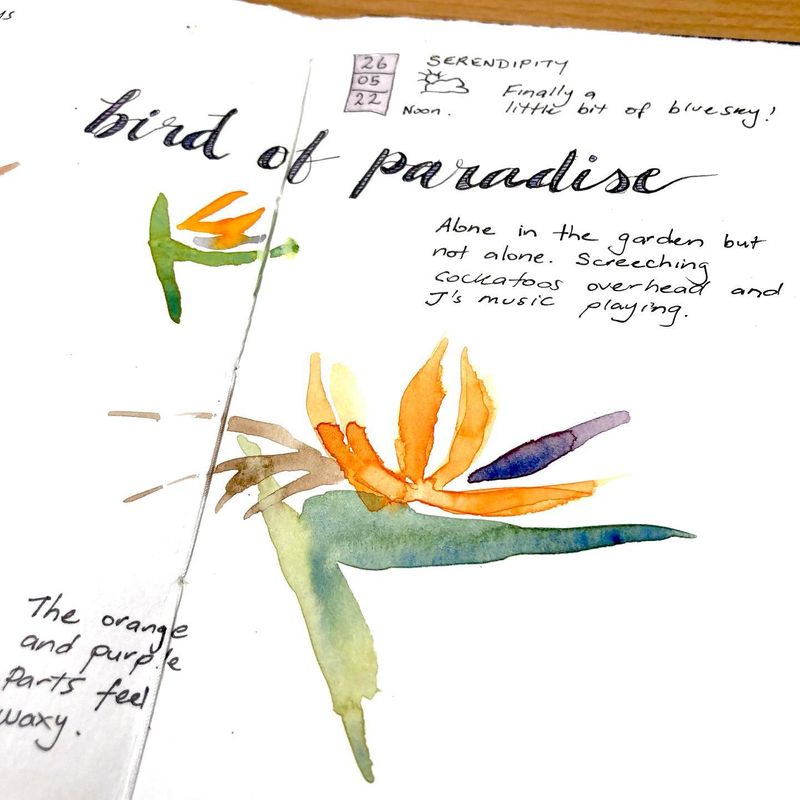 26
05
22
SERENDIPITY
Noon.
Finally a
little bit of bluesky!
bird of paradise
Alone in the garden but
not alone. Screeching
cockatoos overhead and
J's music playing.
The orange
and purple
Parts feel
waxy.